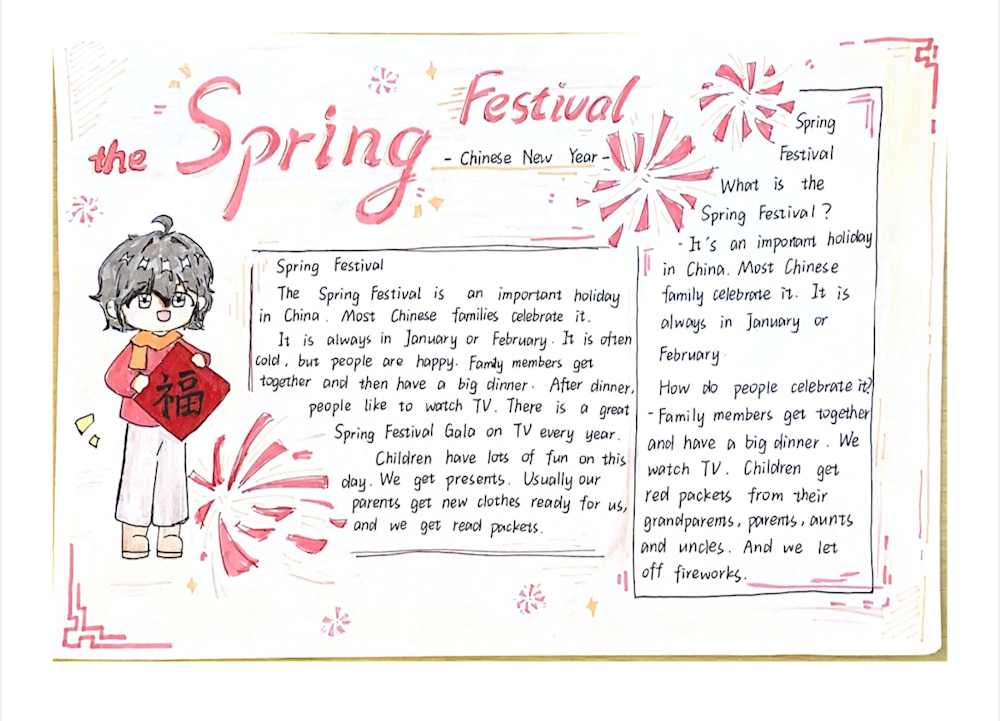 the Spring Festival
- Chinese New Year -
福
Spring Festival
The Spring Festival is an important holiday
in China. Most Chinese families celebrate it.
It is always in January or February. It is often
cold, but people are happy. Family members get
together and then have a big dinner. After dinner,
people like to watch TV. There is a great
Spring Festival Gala on TV every year.
Children have lots of fun on this
day. We get presents. Usually our
parents get new clothes ready for us,
and we get read packets.
Spring
Festival
What is the
Spring Festival?
- It's an important holiday
in China. Most Chinese
family celebrate it. It is
always in January or
February.
How do people celebrate it?
- Family members get together
and have a big dinner. We
watch TV. Children get
red packets from their
grandparents, parents, aunts
and uncles. And we let
off fireworks.